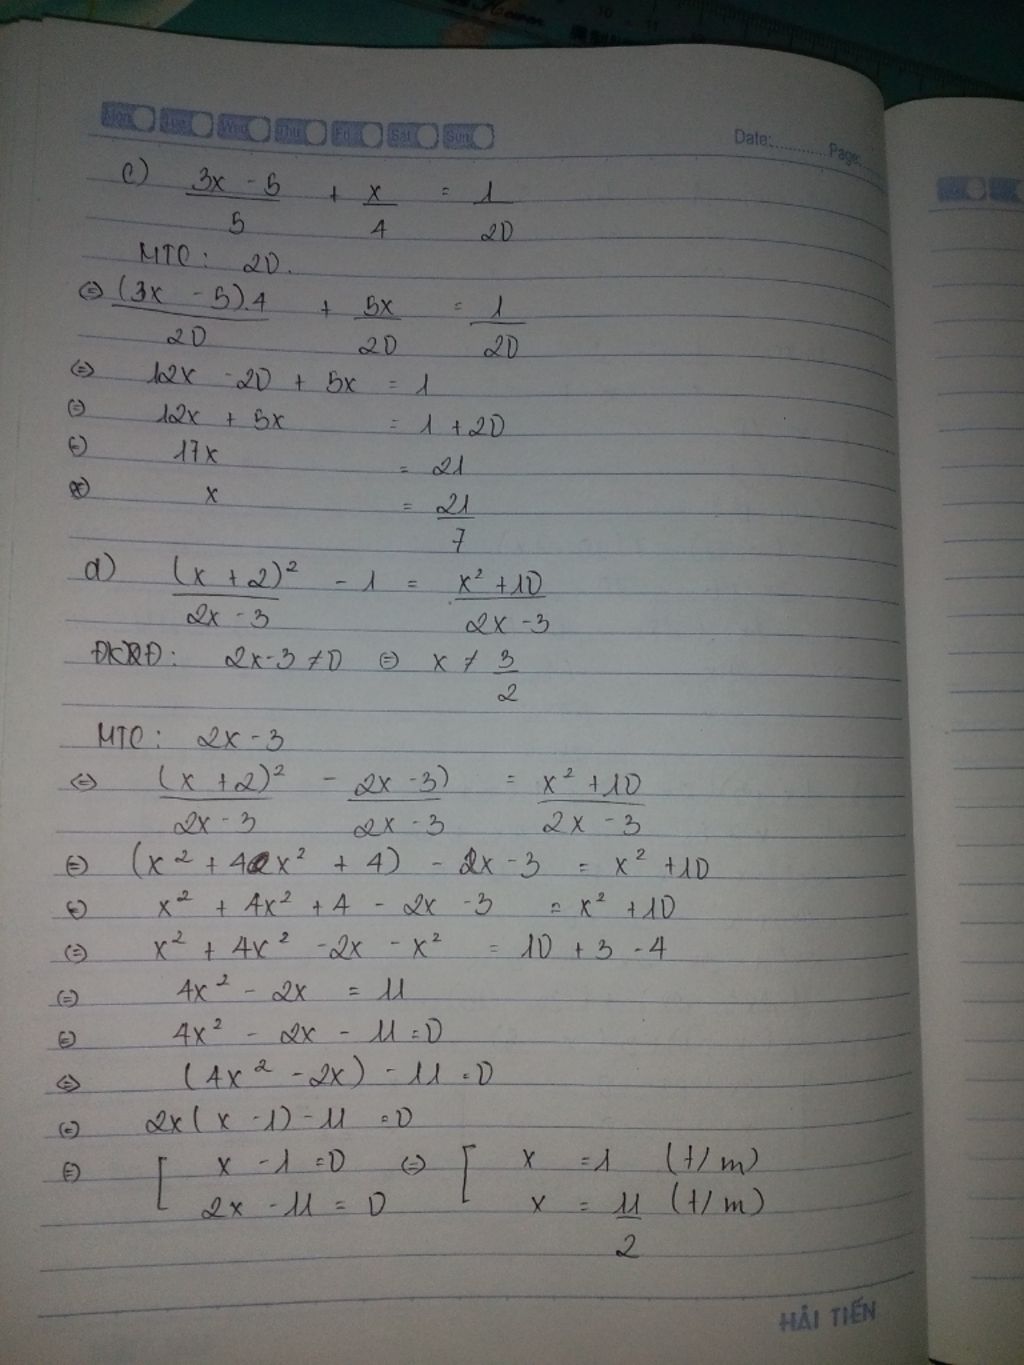 Mon Tue Wed Thu Fri Sat Sun Date:............ Page:
c) (3x - 5)/5 + x/4 = 1/20
MTC: 20.
⇔ (3x - 5).4/20 + 5x/20 = 1/20
⇔ 12x - 20 + 5x = 1
⇔ 12x + 5x = 1 + 20
⇔ 17x = 21
⇔ x = 21/7
d) (x + 2)²/(2x - 3) - 1 = (x² + 10)/(2x - 3)
ĐKXĐ: 2x - 3 ≠ 0 ⇔ x ≠ 3/2
MTC: 2x - 3
⇔ (x + 2)²/(2x - 3) - 2x - 3)/(2x - 3) = (x² + 10)/(2x - 3)
⇔ (x² + 4x² + 4) - 2x - 3 = x² + 10
⇔ x² + 4x² + 4 - 2x - 3 = x² + 10
⇔ x² + 4x² - 2x - x² = 10 + 3 - 4
⇔ 4x² - 2x = 11
⇔ 4x² - 2x - 11 = 0
⇔ (4x² - 2x) - 11 = 0
⇔ 2x(x - 1) - 11 = 0
⇔ [ x - 1 = 0 ⇔ [ x = 1 (t/m)
2x - 11 = 0 x = 11/2 (t/m)
HẢI TIẾN